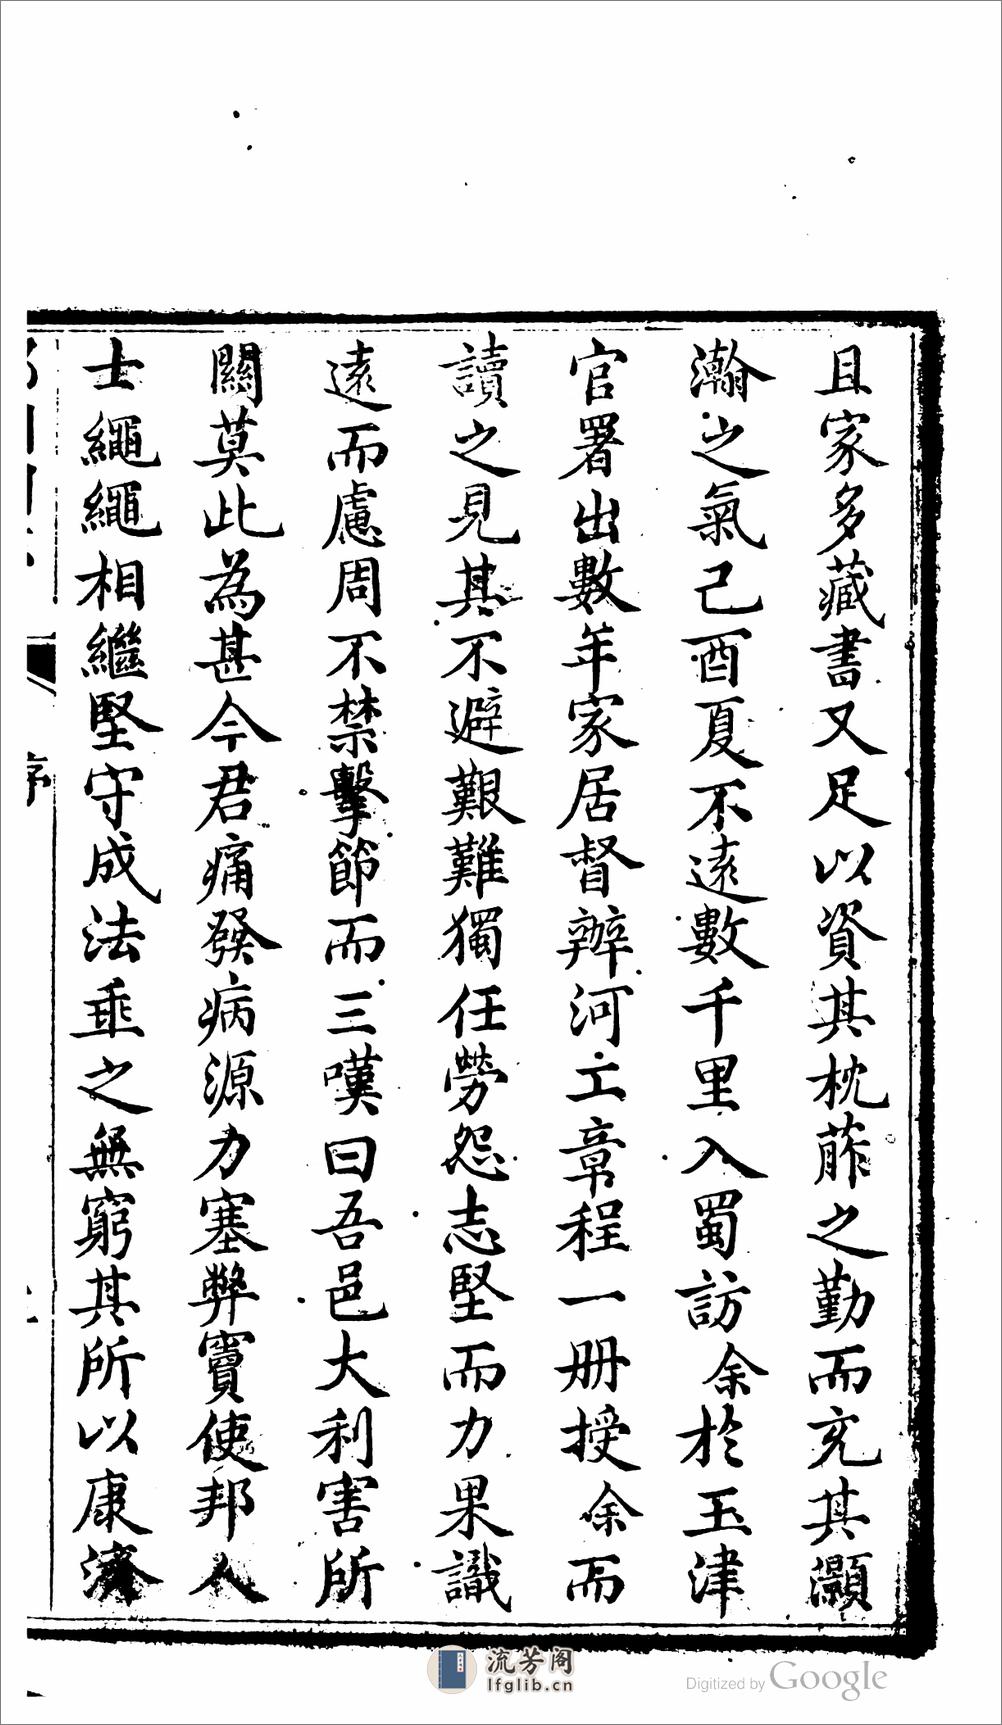 且家多藏書又足以資其枕葄之勤而充其灝
瀚之氣己酉夏不遠數千里入蜀訪余於玉津
官署出數年家居督辦河工章程一册授余而
讀之見其不避艱難獨任勞怨志堅而力果識
遠而慮周不禁擊節而三嘆曰吾邑大利害所
關莫此為甚今君痛發病源力塞弊竇使邦人
士繩繩相繼堅守成法垂之無窮其所以康濟
序
流芳阁
lfglib.cn
Digitized by Google